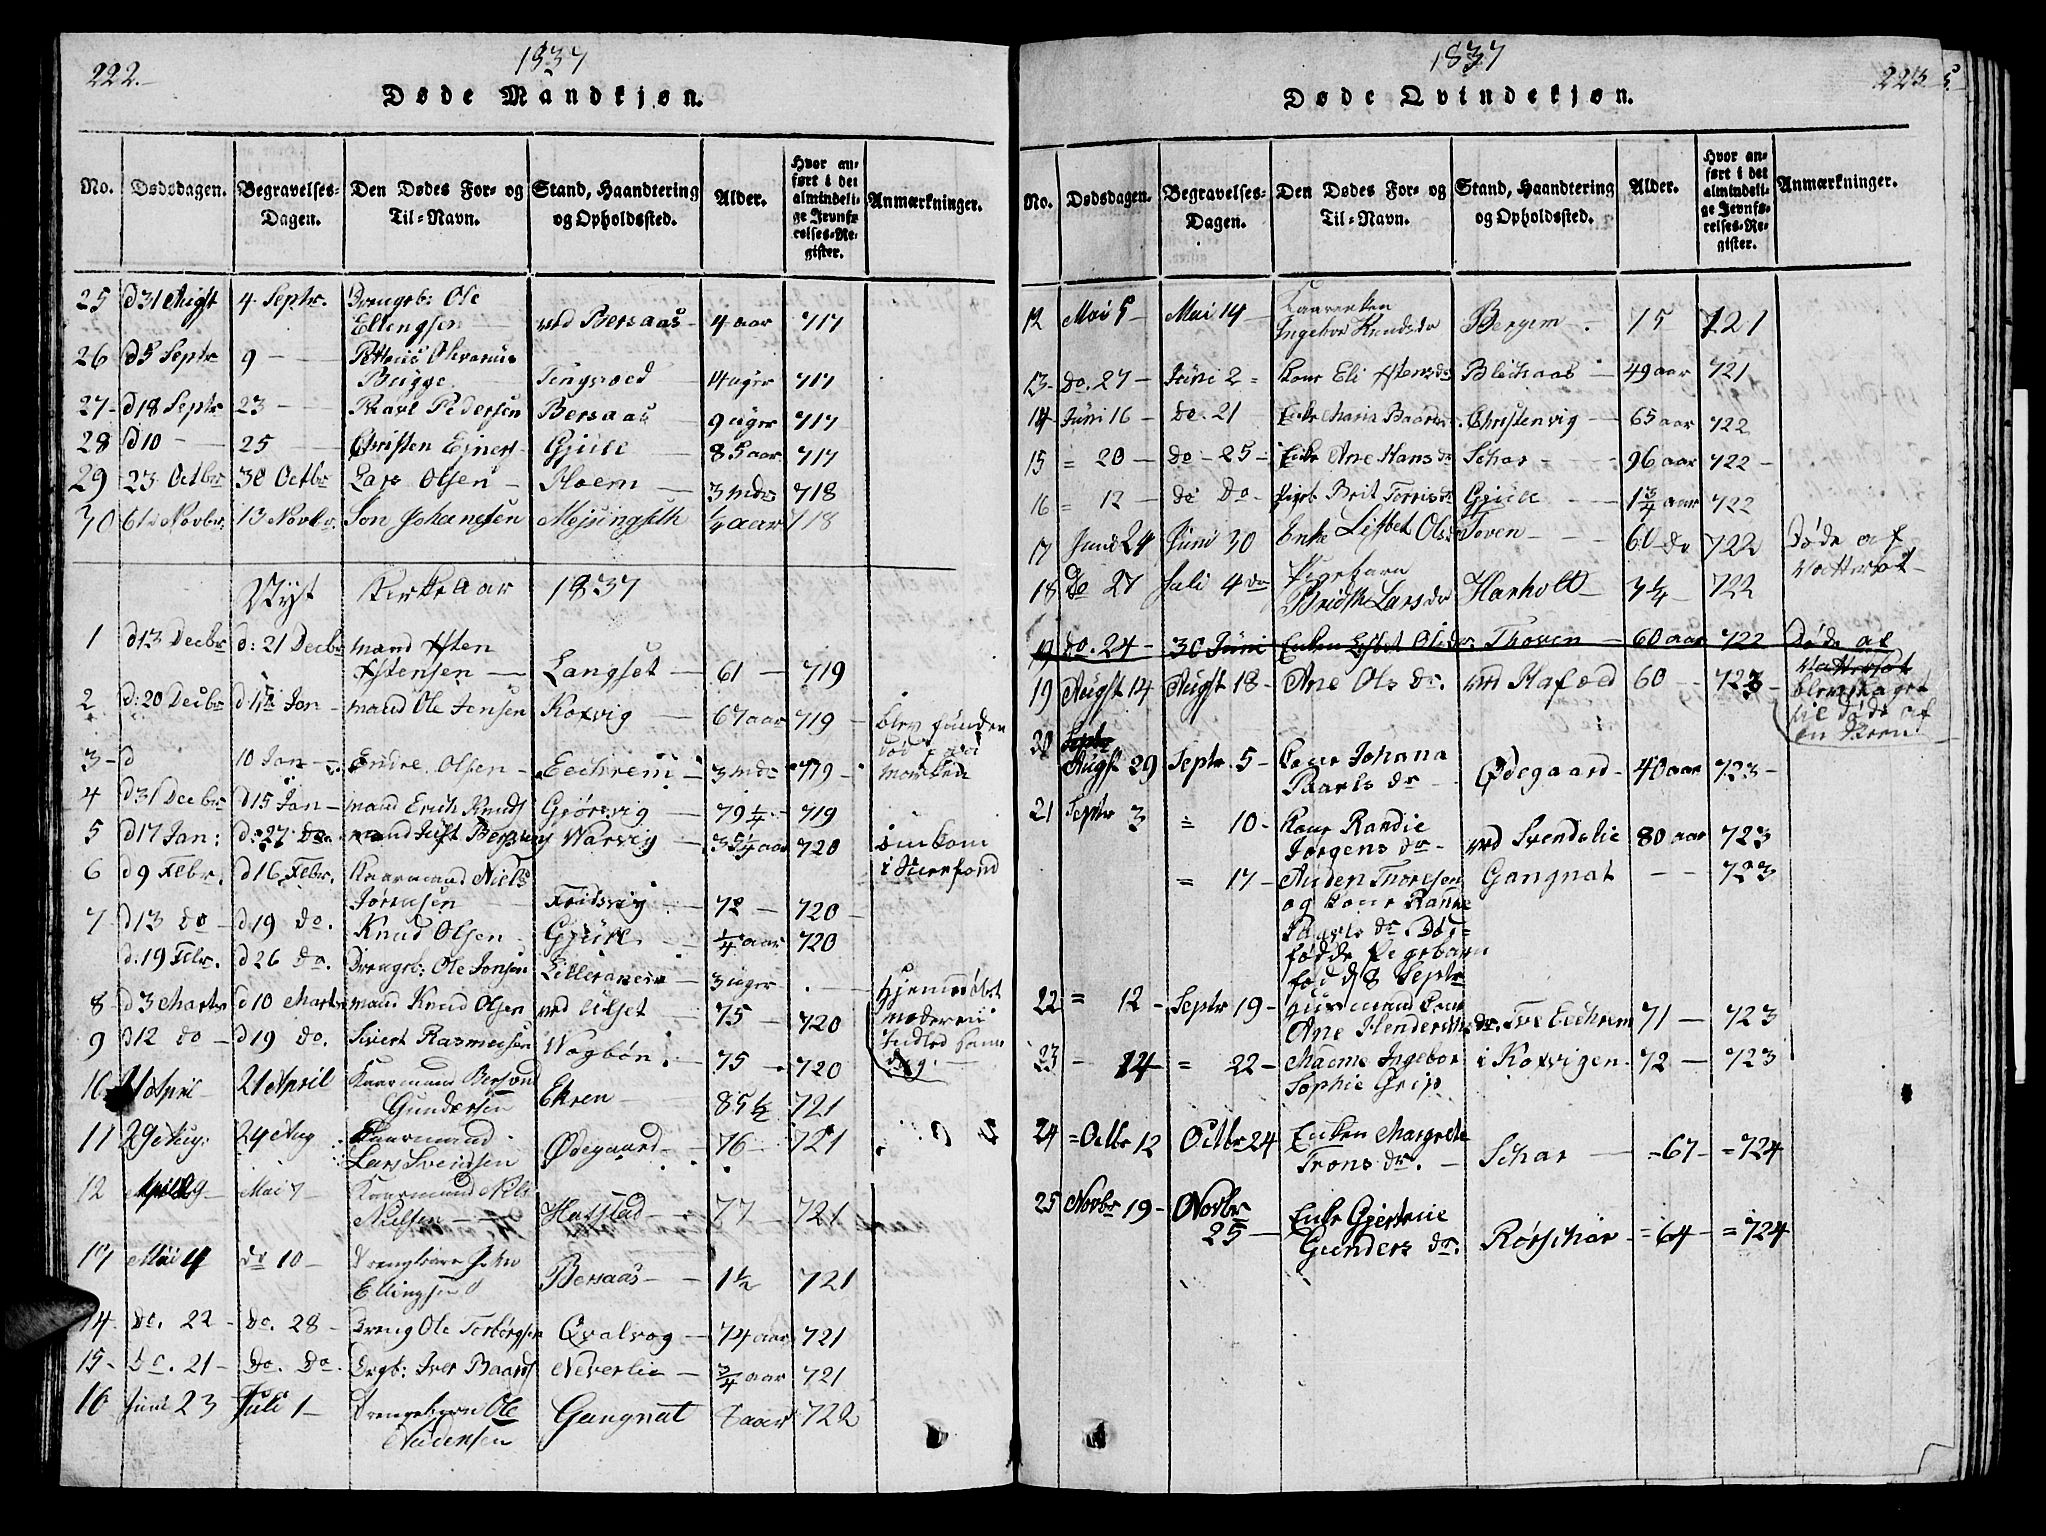 222.
1837
Døde Mandkjøn.
No. Dødsdagen. Begravelses-Dagen. Den Dødes For- og Til-Navn. Stand, Haandtering og Opholdssted. Alder. Hvor anført i det almindelige Jevnførelses-Register. Anmærkninger.
25 d31 Augst 4 Septr. Drengeb: Ole
Ellengsen ved Bersaas 4 aar 717
26 d5 Septr 9
Bugge Tingvoed 14 uger 717
27 d18 Septr 23 Karl Pedersen Bersaas 9 uger 717
28 d10 25 Christen Ejnert Gjule 85 aar 717
29 23 Octbr 30 Octbr Lars Olsen Hoem 3 mdr 718
30 6te Novbr. 13 Novbr. Jon Johansen 1/4 aar 718
Nyt Kirkeaar 1837
1 d13 Decbr d: 21 Decbr mand Østen
Østensen Langset 61 719
2 d: 20 Decbr Jan mand Ole Jonsen Korsvig 67 aar 719 blev funden
død paa
3 d 10 Jan Endre Olsen Eechrem 3 mdr 719 Marken
4 d31 Decbr d15 Jan mand Erich Knuds Gjørsvig 79 1/4 719
5 d17 Jan: d: 27 Do Warvig 720 omkom
6 d9 Febr. d16 Febr. Kaarmand Niels i Nærefiord
Jørensen Fridsvig 72 720
7 d13 Do d19 Do. Knud Olsen Gjule 1/4 aar 720
d. 19 Febr. d26 Do. Drengeb: Ole Jonsen Lilleranem 3 uger
Hjemmedøbt
8 d3 Marts d10 Marts mand Knud Olsen ved Alset 75 720
9 d12 Do d19 Do. Sivert Rasmussen Wogbøn 75 720
dag.
10 April 21 April Kaarmand Bersvend
Gundersen Ekren 85 1/2 721
11 29 Aug: 24 Aug Kaarmand
Lars Svendsen Ødegaard 76 721
12 April 29 Mai 7 Kaarmand Nils
Nielsen Hasstad 77 721
13 Mai 4 Do 10 Drengebarn John
Ellingsen Bersaas 1 1/2 721
14 Do. 22 Do. 28 Dreng Ole Torbørgsen Qvalvog 74 aar 721
15 Do. 21 Do. Do. Drgb: Iver Baards Neverlie 3/4 aar 721
16 Juni 23 Juli 1 Drengebarn Ole
Audensen Gangnat aar 722
1837
223
Døde Qvindekjøn.
No. Dødsdagen. Begravelses-Dagen. Den Dødes For- og Til-Navn. Stand, Haandtering og Opholdssted. Alder. Hvor anført i det almindelige Jevnførelses-Register. Anmærkninger.
12 Mai 5 Mai 14 Kaarenken
Ingebor Knudsdr Bergem 75 721
13 Do. 27 Juni 2 Kone Eli Østensdr Blekaas 49 aar 721
14 Juni 16 Do. 21 Enke Maria Baards Christenvig 65 aar 722
15 = 20 Do 25 Enke Ane Hans dr Schar 96 aar 722
16 = 12 Do Do Pigeb. Brit Torrisdr Gjule 1 3/4 aar 722
17 Juni 24 Juni 30 Enke Lisbet Olsdr Toven 60 Do 722 Døde af
Vattersot
18 Do 27 Juli 4 Do Pigebarn
Bridth Larsdr Harholt 3 1/4 722
19 Do. 24 30 Juni Enken Lisbet Olsdr. Thoven 60 aar 722 Døde af
Vattersot
19 Augst 14 Augst 18 Ane Ols dr. ved Hafoed 60 723
til Døde af
20 Septr
Augst 29 Septr 5 Kone Johana
Paavls dr Ødegaard 40 aar 723
21 Septr 3 = 10 Kone Randie
Jørgens dr ved Svendslie 80 aar 723
= 17 Auden Thoresen Gangnat 723
og Kone Ranne
Paavls dr. Død=
fødde Pigebarn
fød d 8 Septr
22 = 12 Septr 19 Huusmand Kone
Ane Hendersdr Eechrem 71 723
23 14 = 22 Madme Ingebor i Korsvigen 72 723
Sophie Grip
24 = Octbr 12 Octbr 24 Enken Margrete
Trons dr. Schar = 67 = 724
25 Novbr 19 Novbr
25 Enke Gjertrue
Gunders dr. Rørschar = 64 = 724